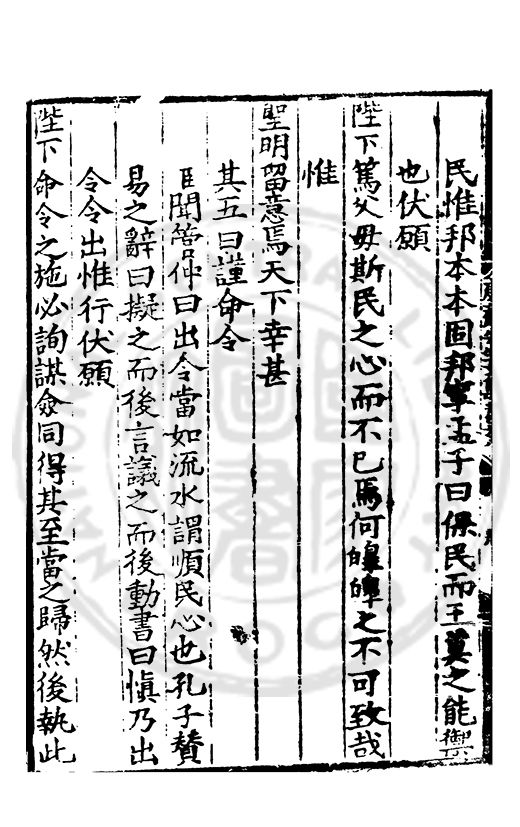 民惟邦本本固邦寧孟子曰保民而王莫之能禦
也伏願
陛下篤父母斯民之心而不已焉何皥皥之不可致哉
惟
聖明留意焉天下幸甚
其五曰謹命令
臣聞管仲曰出令當如流水謂順民心也孔子贊
易之辭曰擬之而後言議之而後動書曰愼乃出
令令出惟行伏願
陛下命令之施必詢謀僉同得其至當之歸然後執此